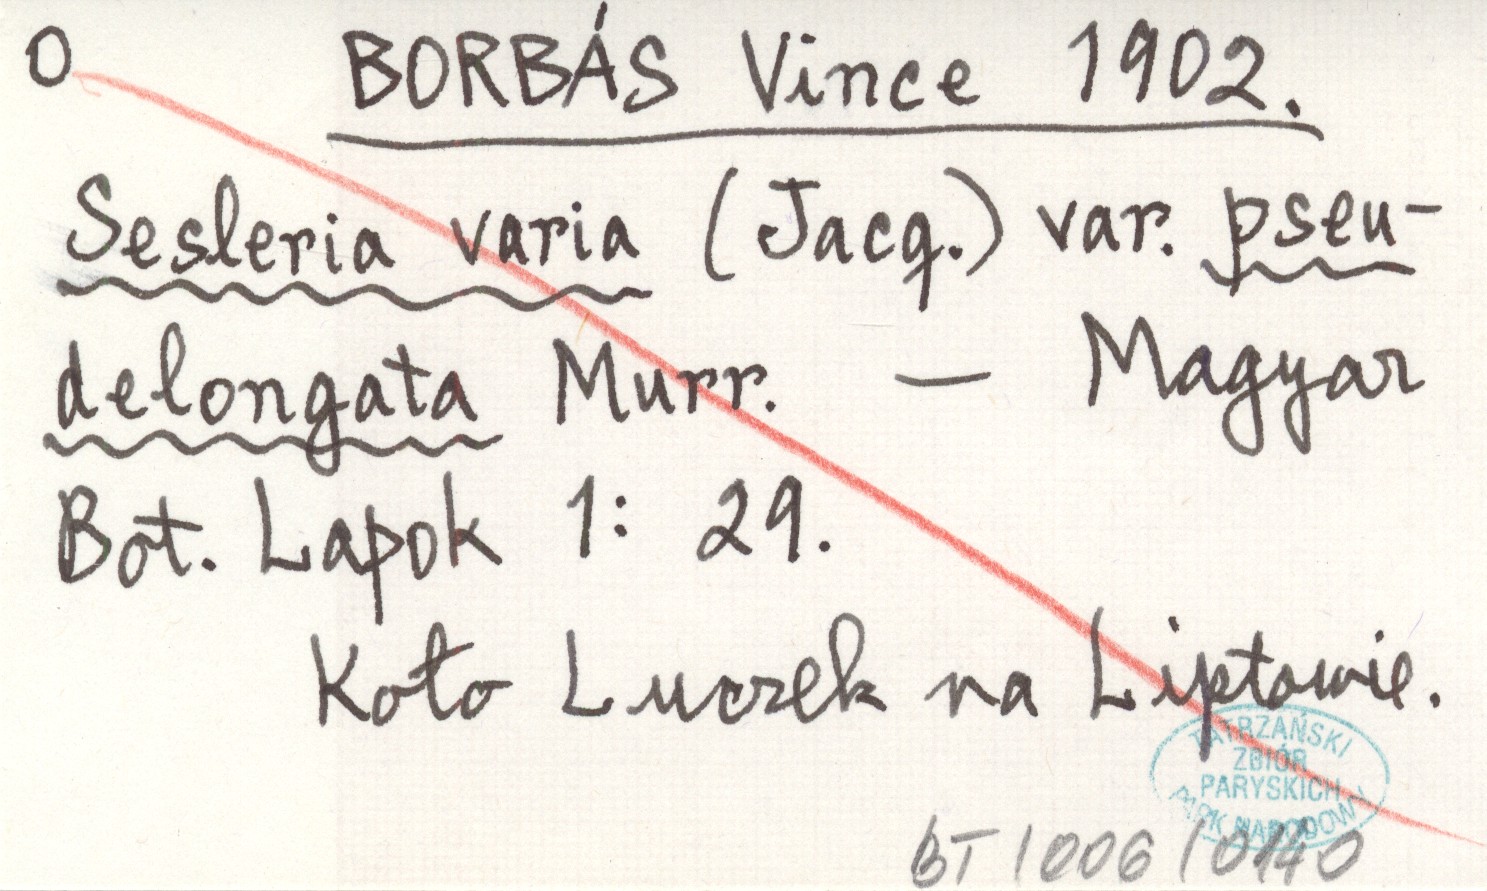 O BORBÁS Vince 1902.
Sesleria varia (Jacq.) var. pseu-
delongata Murr. — Magyar
Bot. Lapok 1: 29.
Koło Luczek na Liptowie.
TATRZAŃSKI
ZBIÓR
PARYSKICH
PARK NARODOWY
BT/006/0140